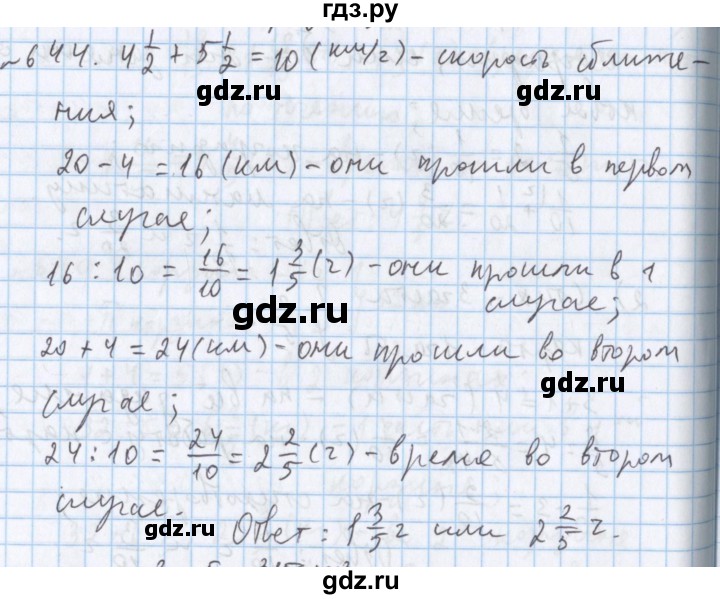 гдз.ру
№644. 4 1/2 + 5 1/2 = 10 (км/г) - скорость сближе-
gdz.ru gdz.ru
ния;
20 - 4 = 16 (км) - они прошли в первом
случае;
gdz.ru
16 : 10 = 16/10 = 1 3/5 (г) - они прошли в 1
случае;
gdz.ru
20 + 4 = 24 (км) - они прошли во втором
случае;
24 : 10 = 24/10 = 2 2/5 (г) - время во втором
случае.
gdz.ru gdz.ru
Ответ: 1 3/5 г или 2 2/5 г.
gdz.ru